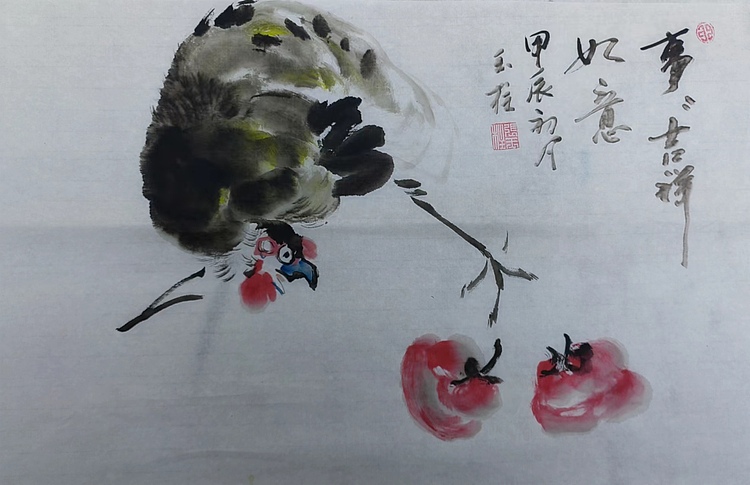 事〻吉祥
如意
甲辰初月
玉柱